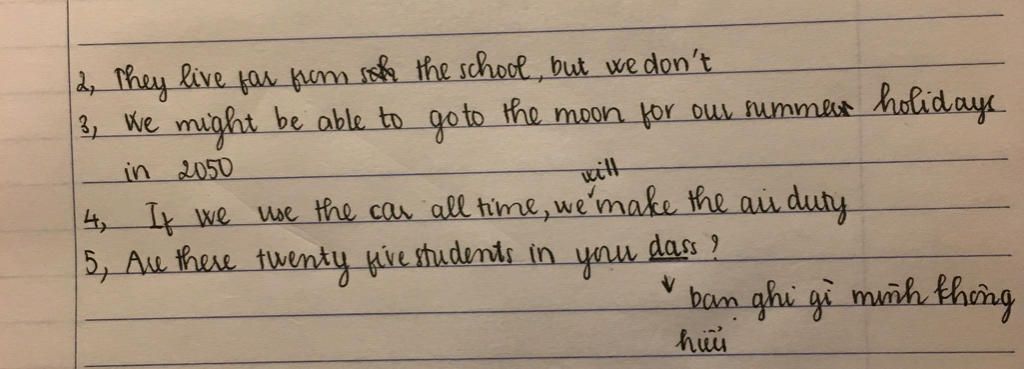 2, They live far from the school, but we don't
3, We might be able to go to the moon for our summer holidays
in 2050
will
4, If we use the car all time, we make the air duty
5, Are there twenty five students in your dass?
bạn ghi gì mình không
hiểu